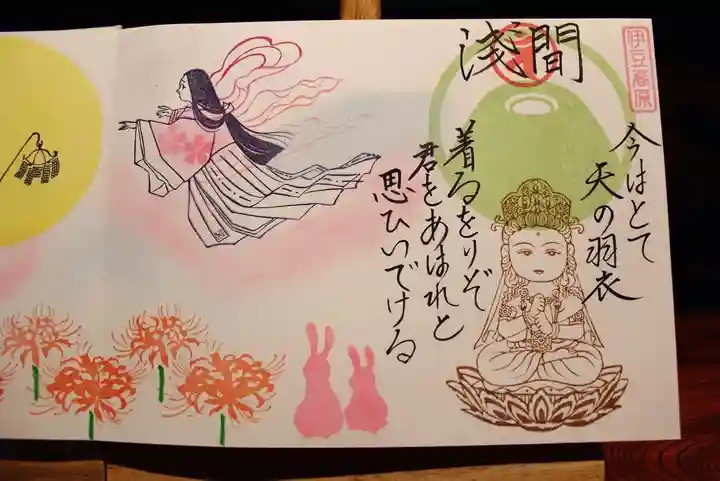 浅間
伊豆高原
今はとて
天の羽衣
着るをりぞ
君をあはれと
思ひいでける